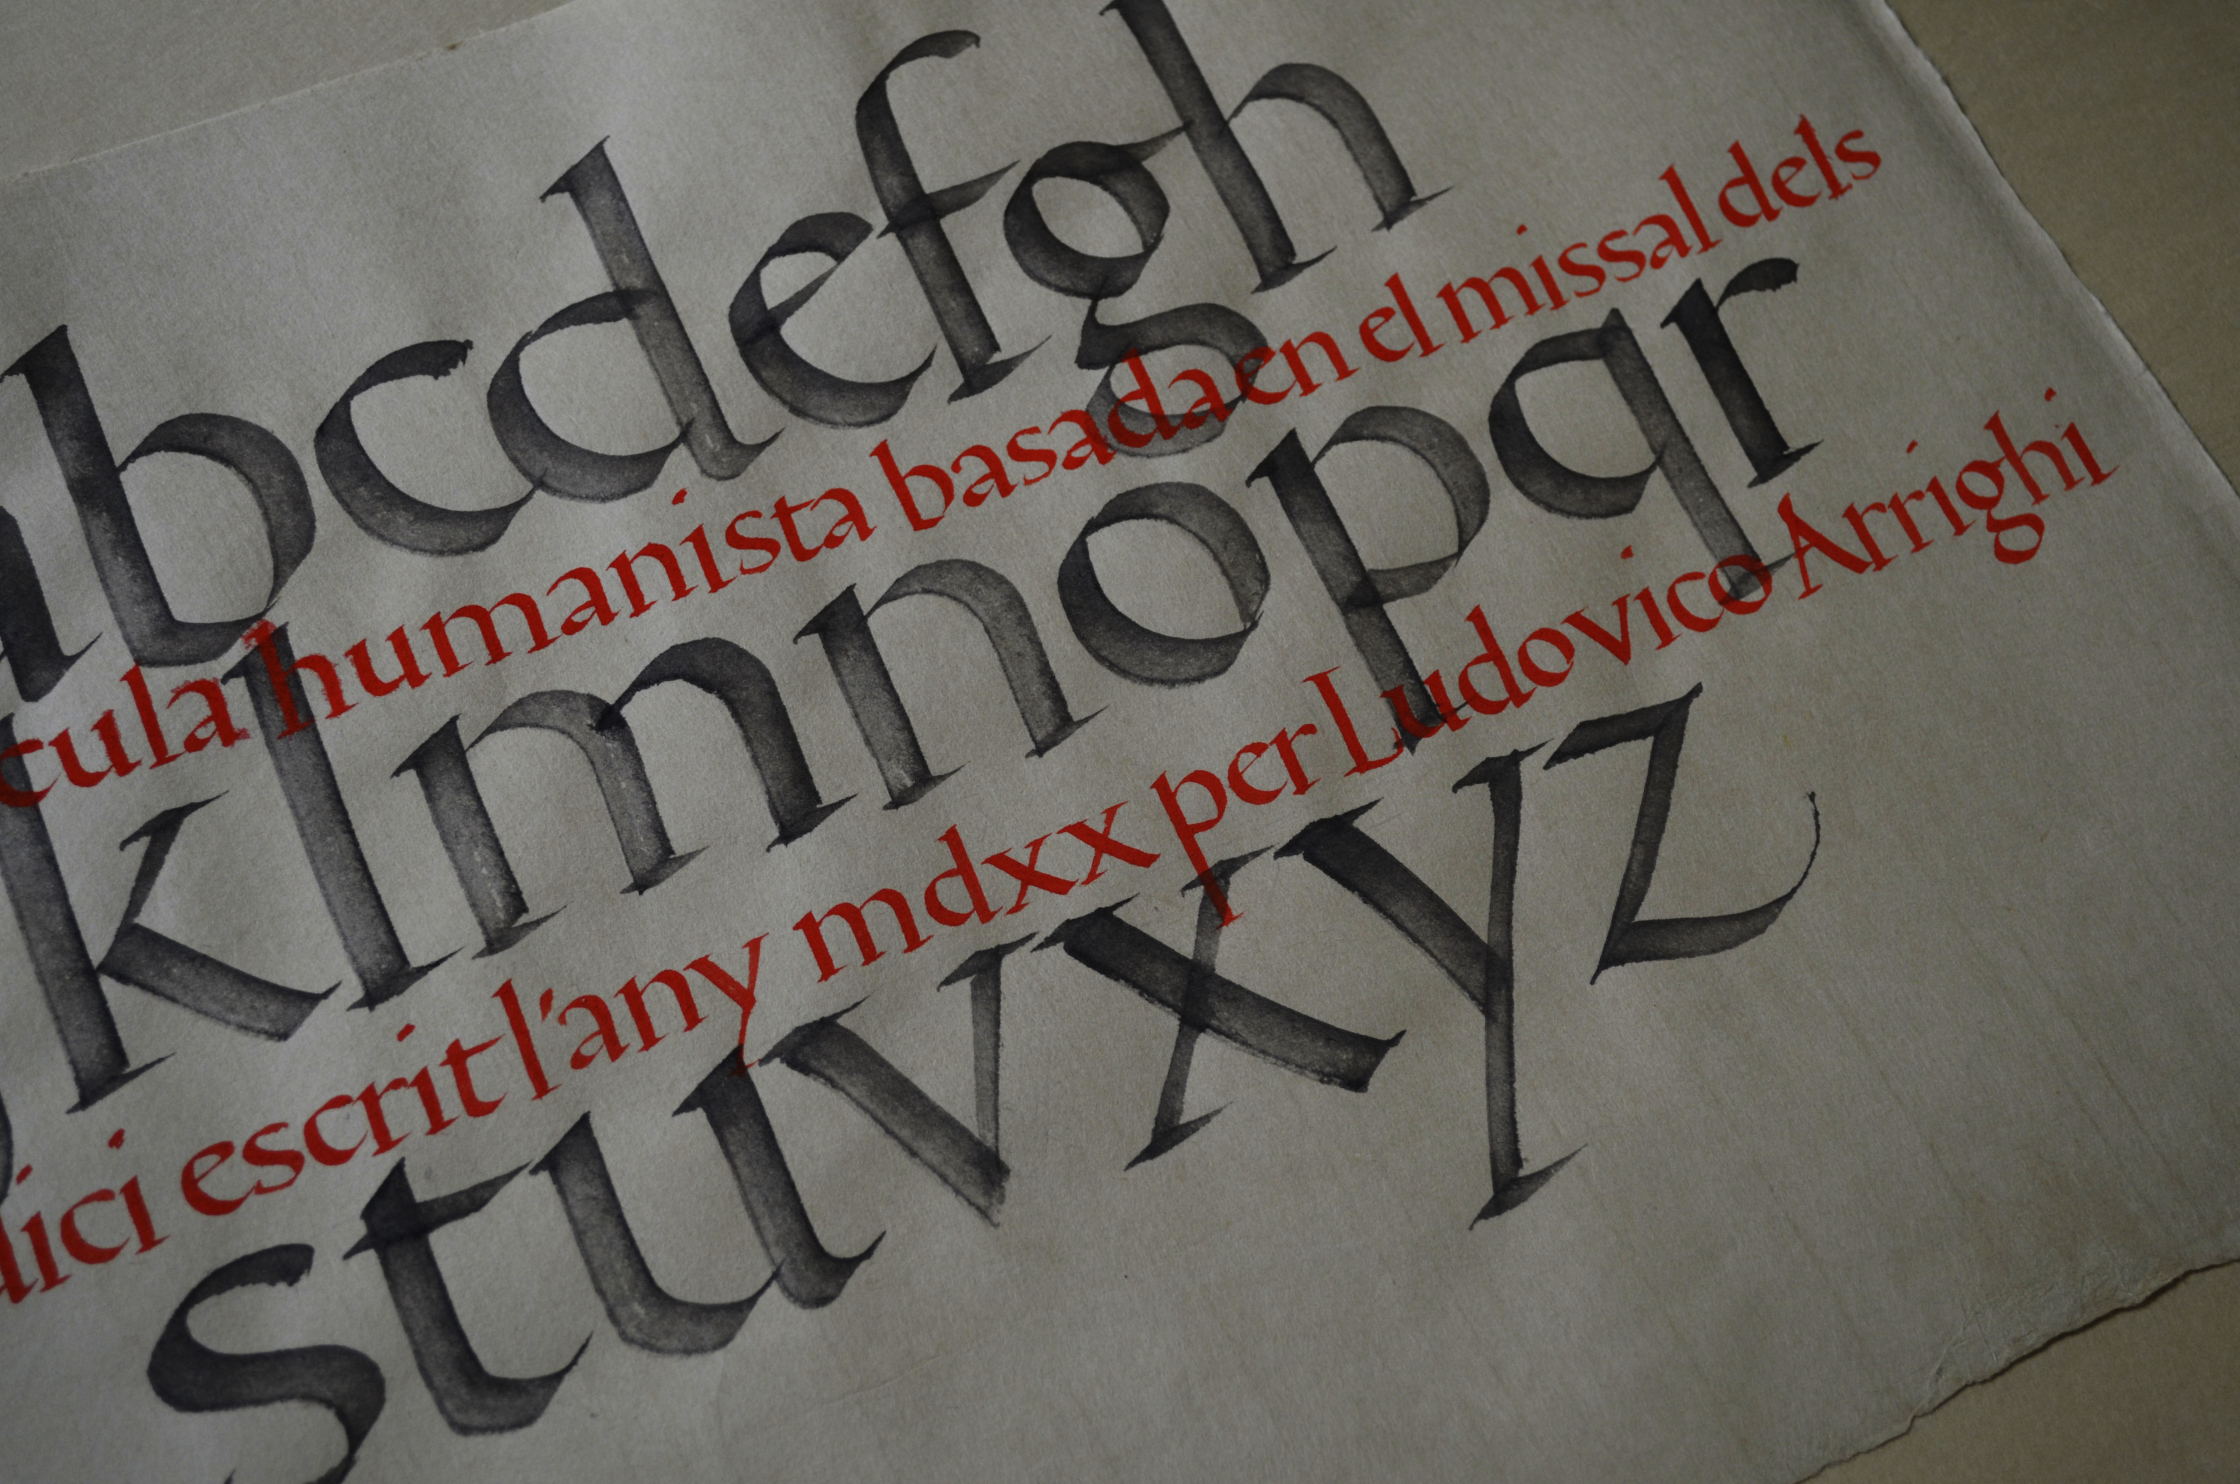 abcdefgh
cula humanista basada en el missal dels
klmnopqr
dici escrit l'any mdxx per Ludovico Arrighi
stuvxyz